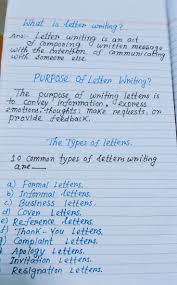 What is letter writing?
Ans: Letter writing is an act
of composing written message
with the intention of communicating
with someone else.
PURPOSE Of Letter Writing?
The purpose of writing letters is
to convey information, express
emotions, thoughts, make requests, or
provide feedback.
The Types of letters.
10 common types of letters writing
are
a) Formal Letters.
b) Informal letters.
c) Business letters.
d) Cover Letters.
e) Reference letters.
f) Thank-You Letters.
g) Complaint Letters.
Apology Letters.
Invitation Letters.
Resignation Letters.